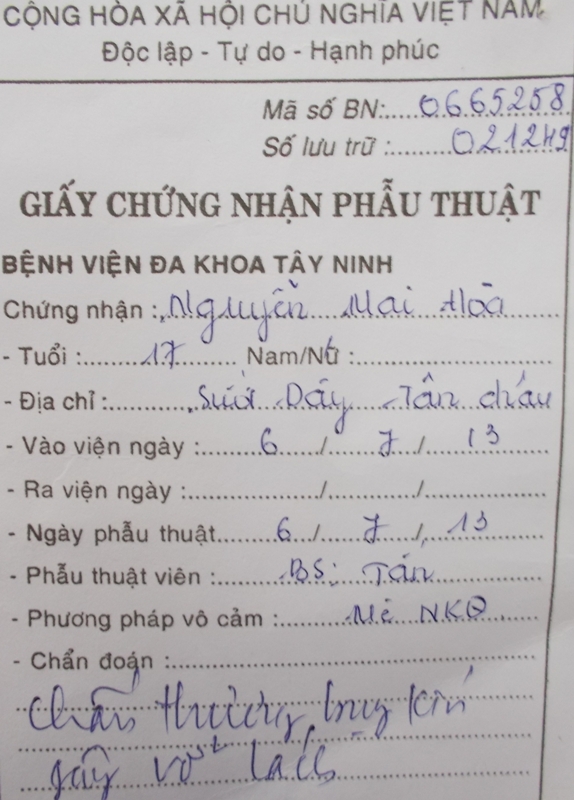 CỘNG HÒA XÃ HỘI CHỦ NGHĨA VIỆT NAM
Độc lập - Tự do - Hạnh phúc
Mã số BN: 0665258
Số lưu trữ : 021249
GIẤY CHỨNG NHẬN PHẪU THUẬT
BỆNH VIỆN ĐA KHOA TÂY NINH
Chứng nhận : Nguyễn Mai Hòa
- Tuổi : 17 Nam/Nữ :
- Địa chỉ : Suối Dây Tân châu
- Vào viện ngày : 6 / 7 / 13
- Ra viện ngày : / /
- Ngày phẫu thuật 6 / 7 / 13
- Phẫu thuật viên : BS: Tán
- Phương pháp vô cảm : Mê NKQ
- Chẩn đoán :
Chấn thương bụng kín
gây vỡ lách